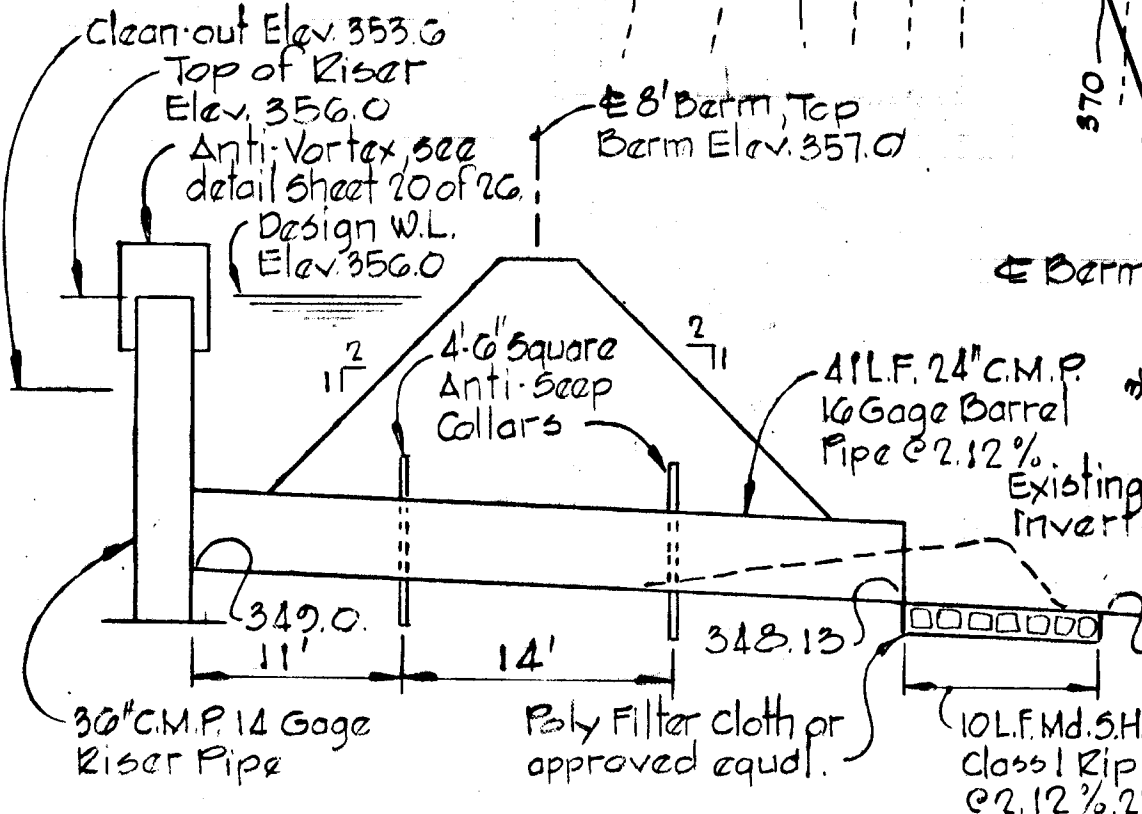 Clean-out Elev. 353.6
Top of Riser
Elev. 356.0
Anti-Vortex, see
detail sheet 20 of 26.
Design W.L.
Elev. 356.0
℄ 8' Berm, Top
Berm Elev. 357.0
370
℄ Berm
2
1
2
1
4'-6" Square
Anti-Seep
Collars
41 L.F. 24" C.M.P.
16 Gage Barrel
Pipe @ 2.12%.
Existing
Invert
349.0.
11'
14'
348.13
36" C.M.P. 14 Gage
Riser Pipe
Poly Filter Cloth or
approved equal.
10 L.F. Md. S.H.
Class 1 Rip
@ 2.12%. 2